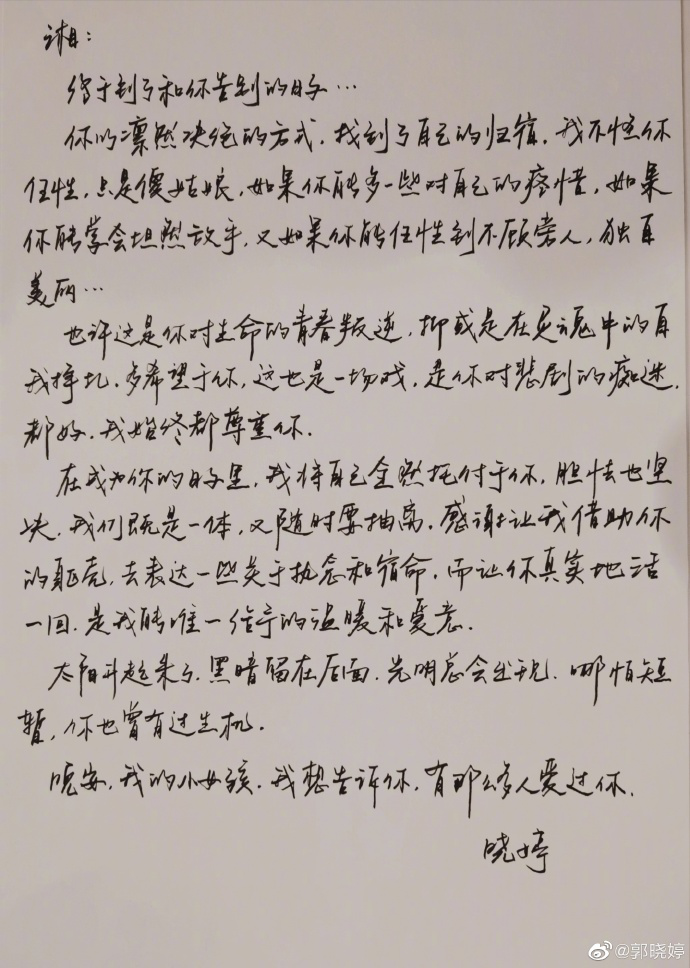 湘：
终于到了和你告别的日子…
你以凛然决绝的方式，找到了自己的归宿，我不怪你
任性，只是傻姑娘，如果你能多一些对自己的疼惜，如果
你能学会坦然放手，又如果你能任性到不顾旁人，独自
美丽…
也许这是你对生命的青春叛逆，抑或是在灵魂中的自
我挣扎，多希望于你，这也是一场戏，是你对悲剧的痴迷，
都好，我始终都尊重你．
在成为你的日子里，我将自己全然托付于你，胆怯也坚
决，我们既是一体，又随时要抽离，感谢让我借助你
的躯壳，去表达一些关于执念和宿命，而让你真实地活
一回，是我能唯一给予的温暖和爱意．
太阳升起来了，黑暗留在后面，光明总会出现，哪怕短
暂，你也曾有过生机．
晚安，我的小女孩，我想告诉你，有那么多人爱过你．
晓婷
@郭晓婷